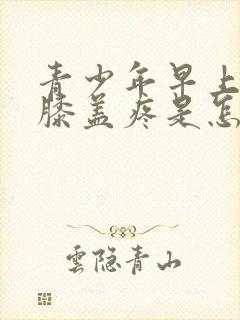 青少年早上
膝盖疼是怎
雲隐青山